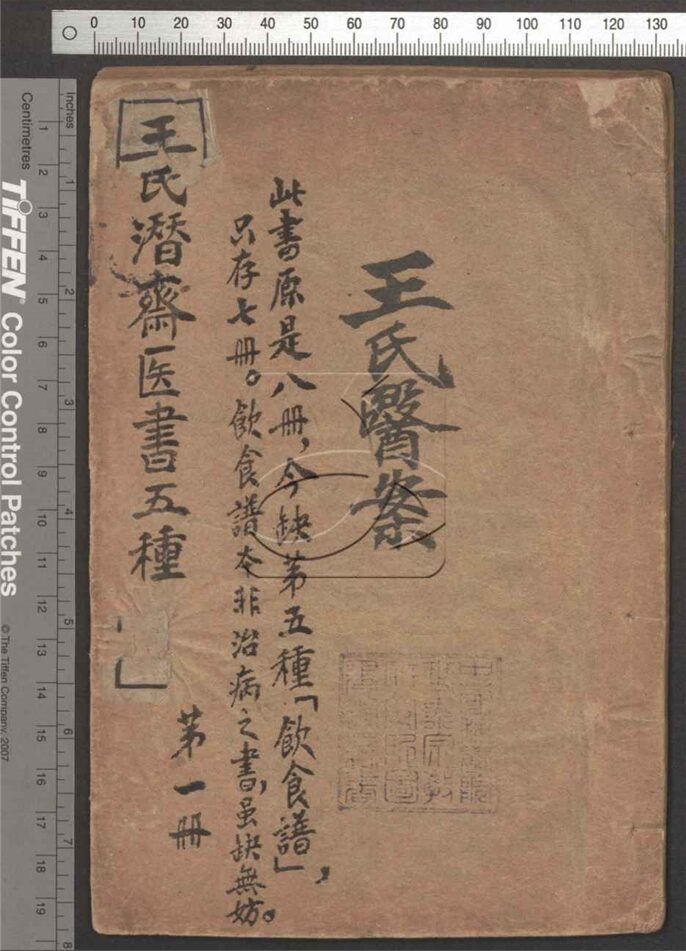 王氏醫案
此書原是八冊，今缺第五種「飲食譜」，
只存七冊。飲食譜本非治病之書，虽缺無妨。
第一冊
王氏潛齋医書五種
0 10 20 30 40 50 60 70 80 90 100 110 120 130
Inches
1 2 3 4 5 6 7 8
Centimetres
1 2 3 4 5 6 7 8 9 10 11 12 13 14 15 16 17 18 19
TIFFEN Color Control Patches
© The Tiffen Company, 2007